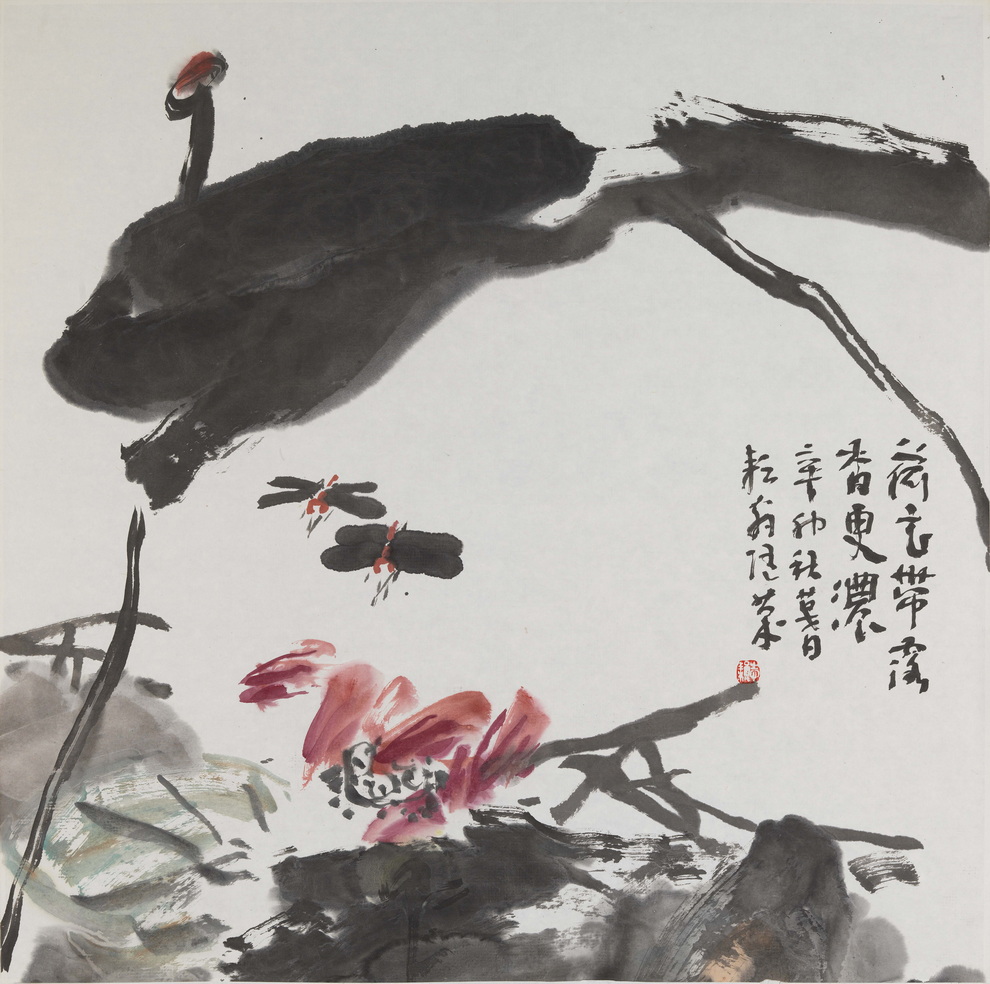 荷衣帶露
香更濃
辛卯秋暮日
耘翁